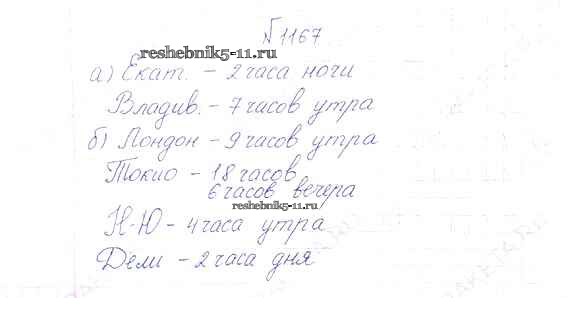 №1167
reshebnik5-11.ru
а) Екат. – 2 часа ночи
Владив. – 7 часов утра
б) Лондон – 9 часов утра
Токио – 18 часов
6 часов вечера
reshebnik5-11.ru
Н-Ю – 4 часа утра
Дели – 2 часа дня